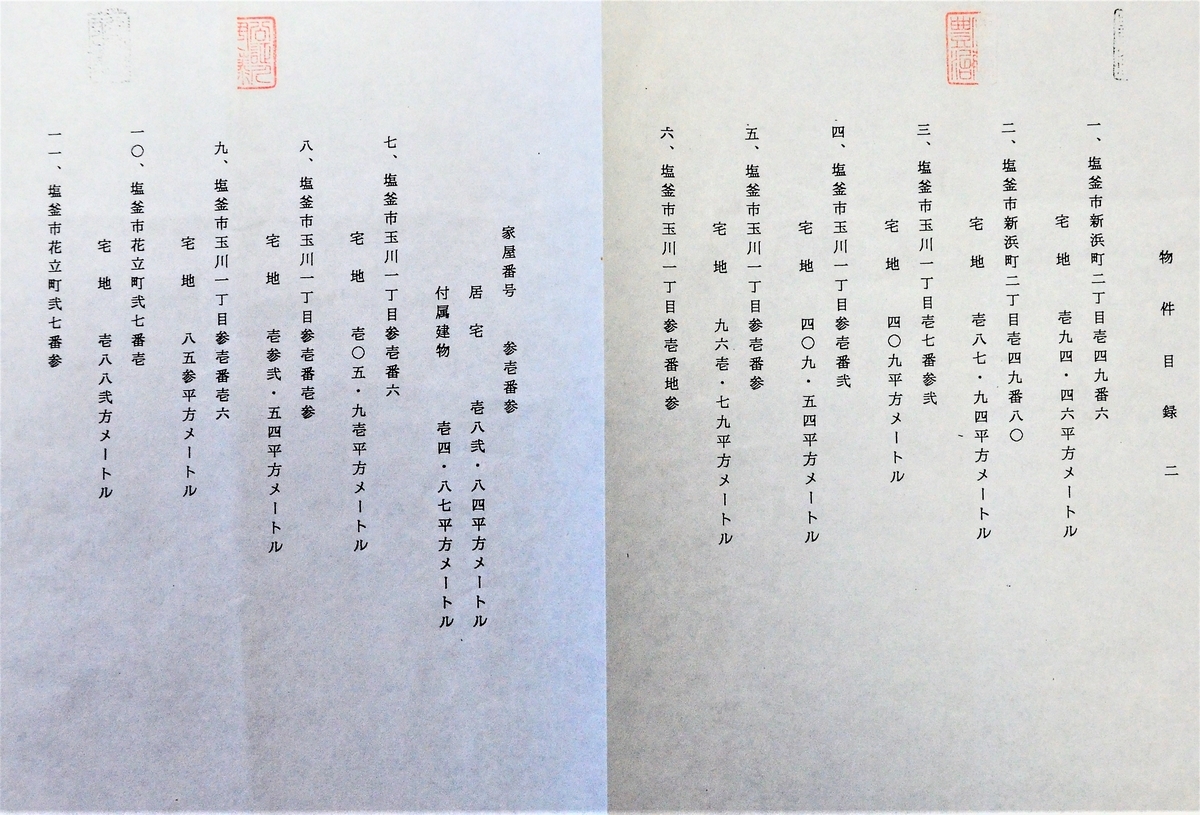 物件目録 二
一、塩釜市新浜町二丁目壱四九番六
宅地 壱九四・四六平方メートル
二、塩釜市新浜町二丁目壱四九番八〇
宅地 壱八七・九四平方メートル
三、塩釜市玉川一丁目壱七番参弐
宅地 四〇九平方メートル
四、塩釜市玉川一丁目参壱番弐
宅地 四〇九・五四平方メートル
五、塩釜市玉川一丁目参壱番参
宅地 九六壱・七九平方メートル
六、塩釜市玉川一丁目参壱番地参
家屋番号 参壱番参
居宅 壱八弐・八四平方メートル
付属建物 壱四・八七平方メートル
七、塩釜市玉川一丁目参壱番六
宅地 壱〇五・九壱平方メートル
八、塩釜市玉川一丁目参壱番壱参
宅地 壱参弐・五四平方メートル
九、塩釜市玉川一丁目参壱番壱六
宅地 八五参平方メートル
一〇、塩釜市花立町弐七番壱
宅地 壱八八弐方メートル
一一、塩釜市花立町弐七番参